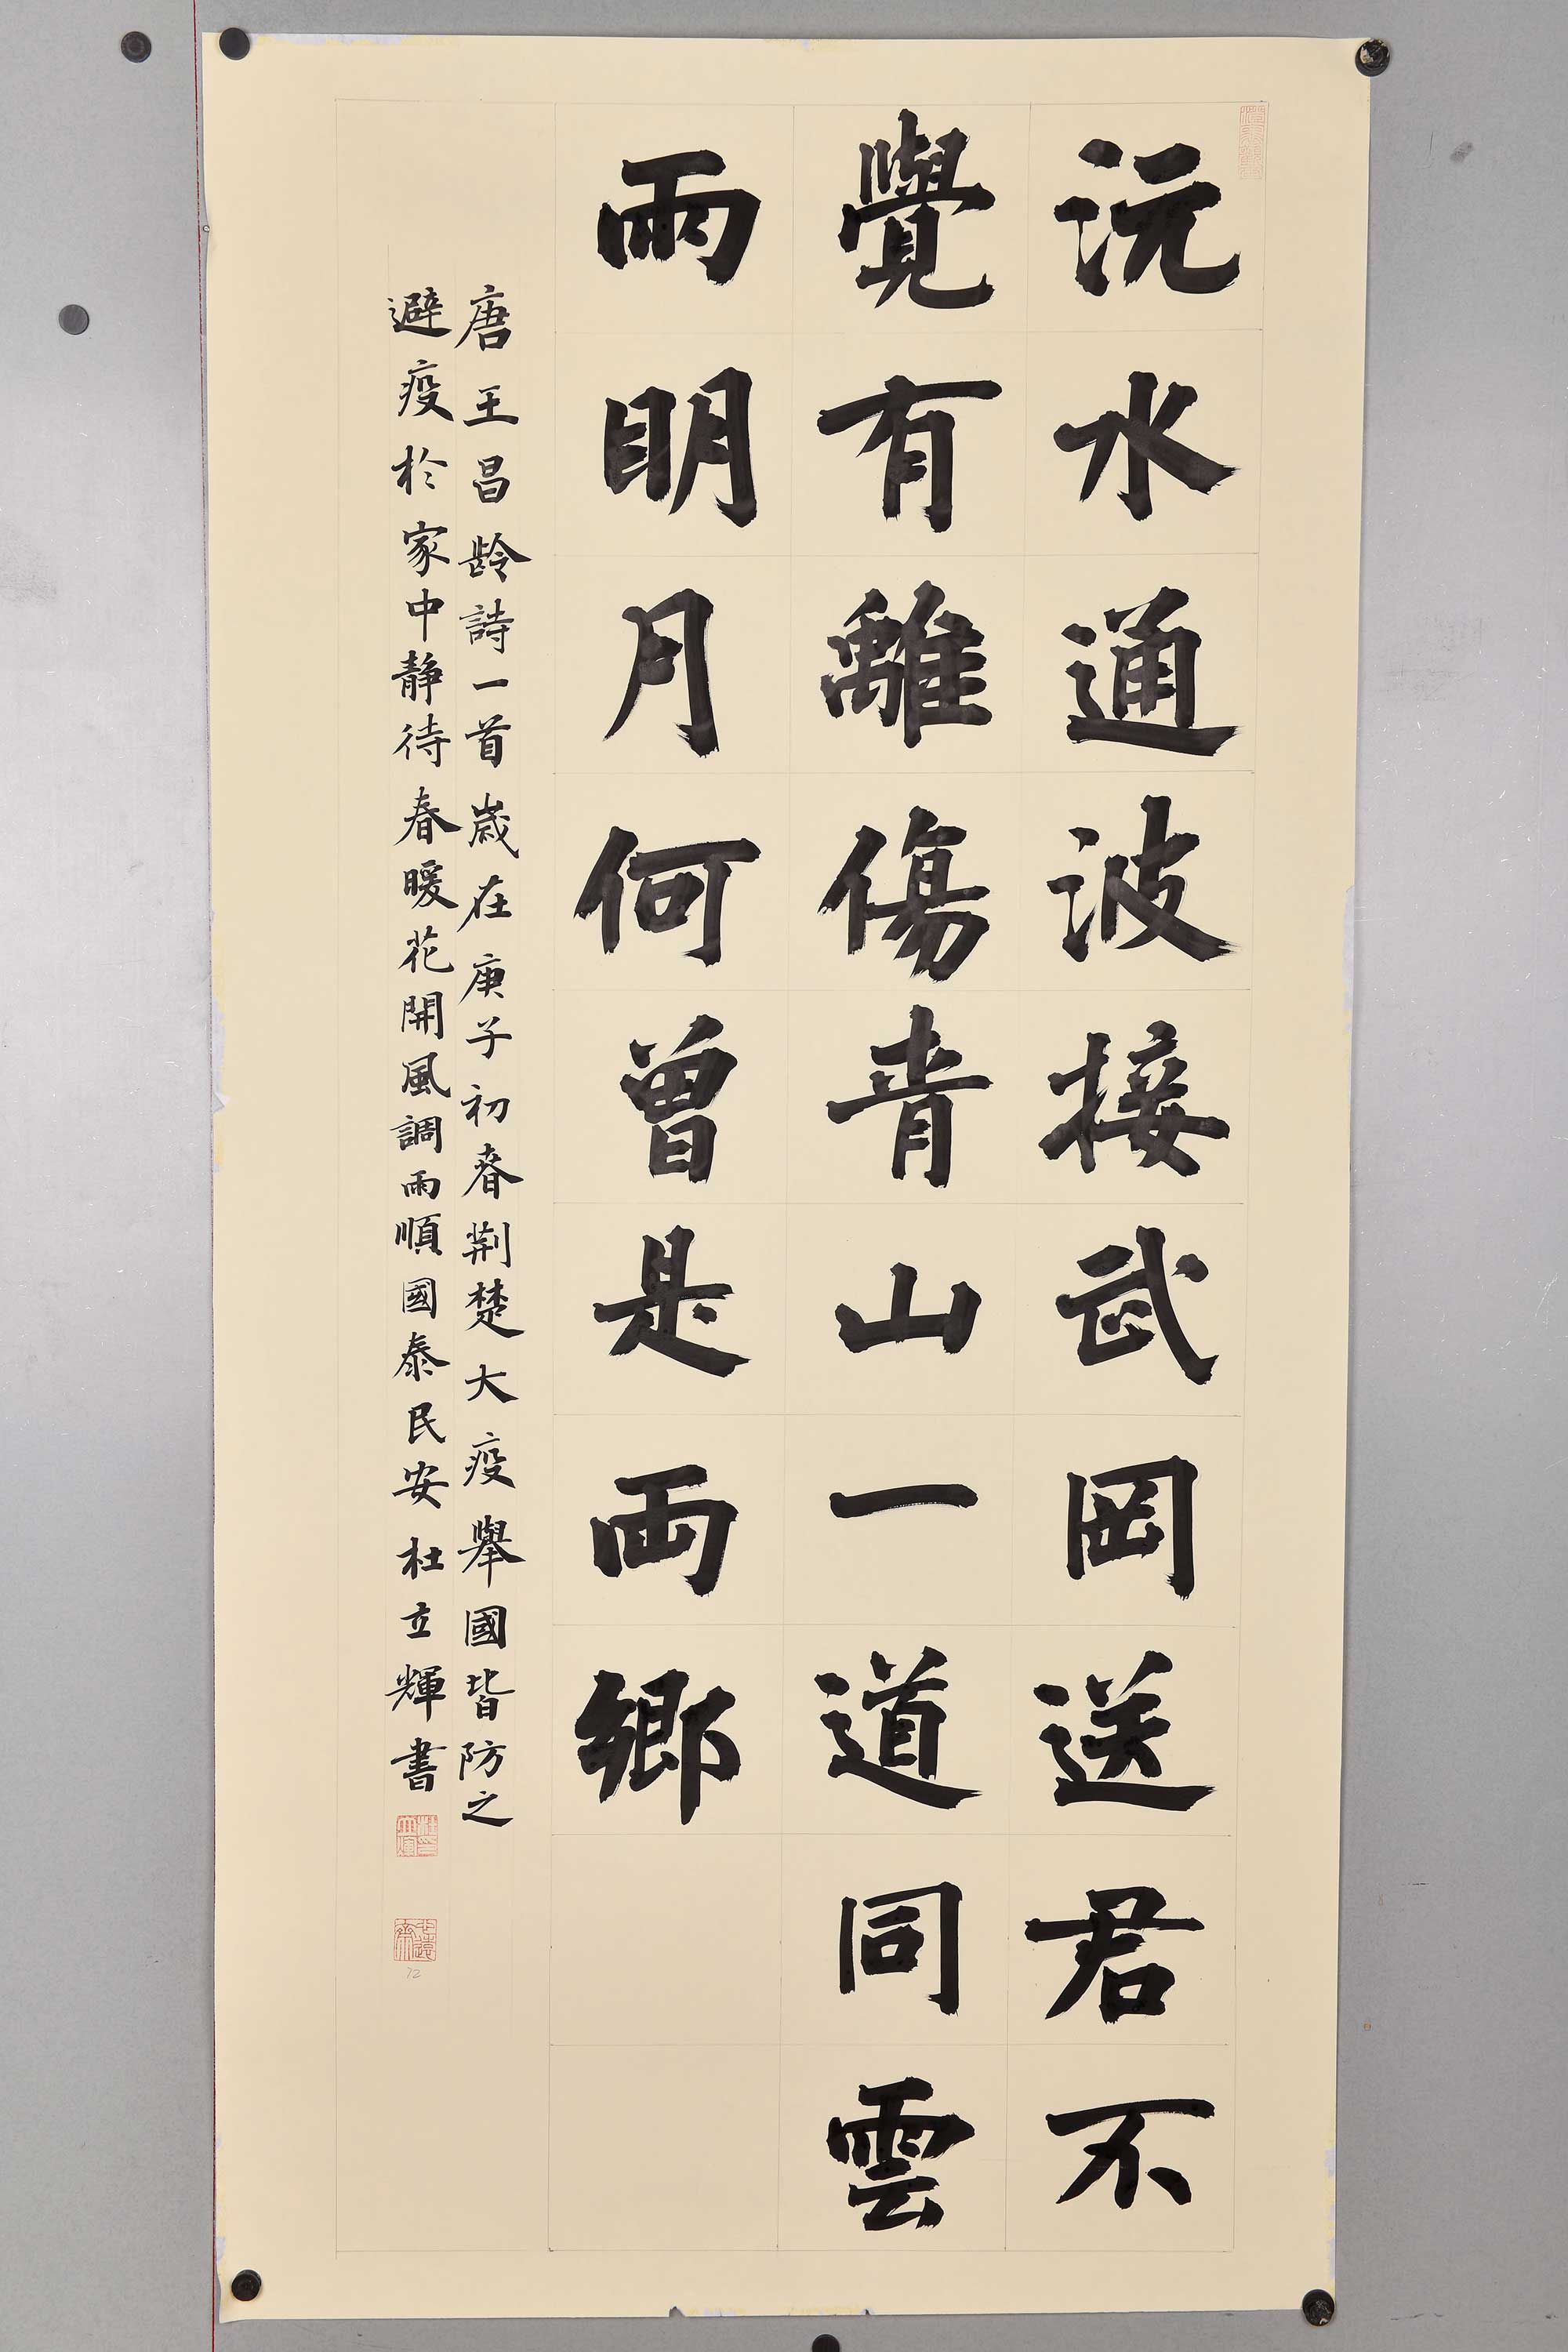 沅水通波接武岡送君不
覺有離傷青山一道同雲
雨明月何曾是兩鄉
唐王昌齡詩一首歲在庚子初春荆楚大疫舉國皆防之
避疫於家中靜待春暖花開風調雨順國泰民安杜立輝書